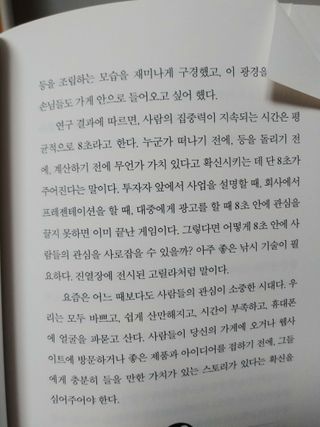 등을 조립하는 모습을 재미나게 구경했고, 이 광경을
손님들도 가게 안으로 들어오고 싶어 했다.
연구 결과에 따르면, 사람의 집중력이 지속되는 시간은 평
균적으로 8초라고 한다. 누군가 떠나기 전에, 등을 돌리기 전
에, 계산하기 전에 무언가 가치 있다고 확신시키는 데 단 8초가
주어진다는 말이다. 투자자 앞에서 사업을 설명할 때, 회사에서
프레젠테이션을 할 때, 대중에게 광고를 할 때 8초 안에 관심을
끌지 못하면 이미 끝난 게임이다. 그렇다면 어떻게 8초 안에 사
람들의 관심을 사로잡을 수 있을까? 아주 좋은 낚시 기술이 필
요하다. 진열장에 전시된 고릴라처럼 말이다.
요즘은 어느 때보다도 사람들의 관심이 소중한 시대다. 우
리는 모두 바쁘고, 쉽게 산만해지고, 시간이 부족하고, 휴대폰
에 얼굴을 파묻고 산다. 사람들이 당신의 가게에 오거나 웹사
이트에 방문하거나 좋은 제품과 아이디어를 접하기 전에, 그들
에게 충분히 들을 만한 가치가 있는 스토리가 있다는 확신을
심어주어야 한다.